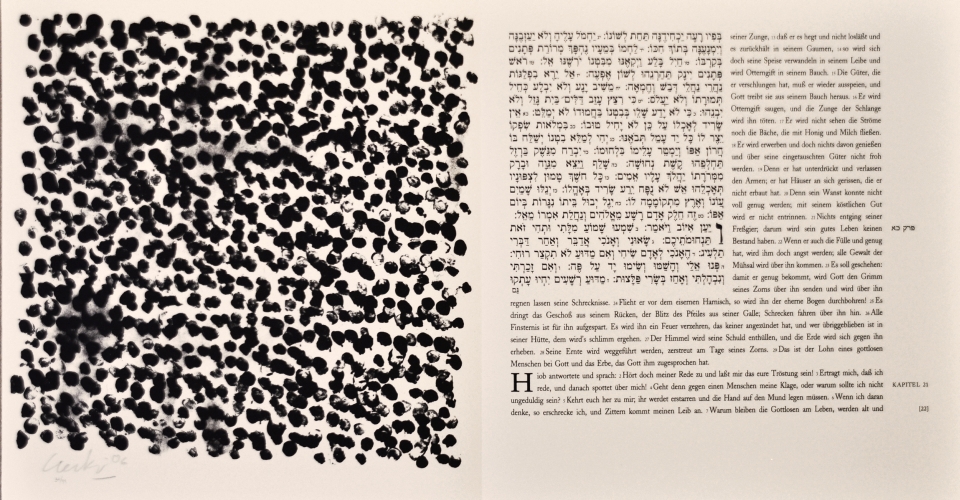 בְּפִיו רָעָה יַכְחִידֶנָּה תַּחַת לְשׁוֹנוֹ: יַחְמֹל עָלֶיהָ וְלֹא יַעַזְבֶנָּה
וְיִמְנָעֶנָּה בְּתוֹךְ חִכּוֹ: לַחְמוֹ בְּמֵעָיו נֶהְפָּךְ מְרוֹרַת פְּתָנִים
בְּקִרְבּוֹ: חַיִל בָּלַע וַיְקִאֶנּוּ מִבִּטְנוֹ יֹרִשֶׁנּוּ אֵל: רֹאשׁ
פְּתָנִים יִינָק תַּהַרְגֵהוּ לְשׁוֹן אֶפְעֶה: אַל יֵרֶא בִפְלַגּוֹת
נַהֲרֵי נַחֲלֵי דְּבַשׁ וְחֶמְאָה: מֵשִׁיב יָגָע וְלֹא יִבְלָע כְּחֵיל
תְּמוּרָתוֹ וְלֹא יַעֲלֹס: כִּי רִצַּץ עָזַב דַּלִּים בַּיִת גָּזַל וְלֹא
יִבְנֵהוּ: כִּי לֹא יָדַע שָׁלֵו בְּבִטְנוֹ בַּחֲמוּדוֹ לֹא יְמַלֵּט: אֵין
שָׂרִיד לְאָכְלוֹ עַל כֵּן לֹא יָחִיל טוּבוֹ: בִּמְלֹאות שִׂפְקוֹ
יֵצֶר לוֹ כָּל יַד עָמֵל תְּבֹאֶנּוּ: יְהִי לְמַלֵּא בִטְנוֹ יְשַׁלַּח בּוֹ
חֲרוֹן אַפּוֹ וְיַמְטֵר עָלֵימוֹ בִּלְחוּמוֹ: יִבְרַח מִנֵּשֶׁק בַּרְזֶל
תַּחְלְפֵהוּ קֶשֶׁת נְחוּשָׁה: שָׁלַף וַיֵּצֵא מִגֵּוָה וּבָרָק
מִמְּרֹרָתוֹ יַהֲלֹךְ עָלָיו אֵמִים: כָּל חֹשֶׁךְ טָמוּן לִצְפּוּנָיו
תְּאָכְלֵהוּ אֵשׁ לֹא נֻפָּח יֵרַע שָׂרִיד בְּאָהֳלוֹ: יְגַלּוּ שָׁמַיִם
עֲוֹנוֹ וְאֶרֶץ מִתְקוֹמָמָה לוֹ: יִגֶל יְבוּל בֵּיתוֹ נִגָּרוֹת בְּיוֹם
אַפּוֹ: זֶה חֵלֶק אָדָם רָשָׁע מֵאֱלֹהִים וְנַחֲלַת אִמְרוֹ מֵאֵל:
וַיַּעַן אִיּוֹב וַיֹּאמַר: שִׁמְעוּ שָׁמוֹעַ מִלָּתִי וּתְהִי זֹאת
תַּנְחוּמֹתֵיכֶם: שָׂאוּנִי וְאָנֹכִי אֲדַבֵּר וְאַחַר דַּבְּרִי
תַלְעִיג: הֶאָנֹכִי לְאָדָם שִׂיחִי וְאִם מַדּוּעַ לֹא תִקְצַר רוּחִי:
פְּנוּ אֵלַי וְהָשַׁמּוּ וְשִׂימוּ יָד עַל פֶּה: וְאִם זָכַרְתִּי
וְנִבְהָלְתִּי וְאָחַז בְּשָׂרִי פַּלָּצוּת: מַדּוּעַ רְשָׁעִים יִחְיוּ עָתְקוּ
גַּם
פרק כא
seiner Zunge, 13 daß er es hegt und nicht losläßt und
es zurückhält in seinem Gaumen, 14 so wird sich
doch seine Speise verwandeln in seinem Leibe und
wird Otterngift in seinem Bauch. 15 Die Güter, die
er verschlungen hat, muß er wieder ausspeien, und
Gott treibt sie aus seinem Bauch heraus. 16 Er wird
Otterngift saugen, und die Zunge der Schlange
wird ihn töten. 17 Er wird nicht sehen die Ströme
noch die Bäche, die mit Honig und Milch fließen.
18 Er wird erwerben und doch nichts davon genießen
und über seine eingetauschten Güter nicht froh
werden. 19 Denn er hat unterdrückt und verlassen
den Armen; er hat Häuser an sich gerissen, die er
nicht erbaut hat. 20 Denn sein Wanst konnte nicht
voll genug werden; mit seinem köstlichen Gut
wird er nicht entrinnen. 21 Nichts entging seiner
Freßgier; darum wird sein gutes Leben keinen
Bestand haben. 22 Wenn er auch die Fülle und genug
hat, wird ihm doch angst werden; alle Gewalt der
Mühsal wird über ihn kommen. 23 Es soll geschehen:
damit er genug bekommt, wird Gott den Grimm
seines Zorns über ihn senden und wird über ihn
regnen lassen seine Schrecknisse. 24 Flieht er vor dem eisernen Harnisch, so wird ihn der eherne Bogen durchbohren! 25 Es
dringt das Geschoß aus seinem Rücken, der Blitz des Pfeiles aus seiner Galle; Schrecken fahren über ihn hin. 26 Alle
Finsternis ist für ihn aufgespart. Es wird ihn ein Feuer verzehren, das keiner angezündet hat, und wer übriggeblieben ist in
seiner Hütte, dem wird's schlimm ergehen. 27 Der Himmel wird seine Schuld enthüllen, und die Erde wird sich gegen ihn
erheben. 28 Seine Ernte wird weggeführt werden, zerstreut am Tage seines Zorns. 29 Das ist der Lohn eines gottlosen
Menschen bei Gott und das Erbe, das Gott ihm zugesprochen hat.
Hiob antwortete und sprach: 2 Hört doch meiner Rede zu und laßt mir das eure Tröstung sein! 3 Ertragt mich, daß ich
rede, und danach spottet über mich! 4 Geht denn gegen einen Menschen meine Klage, oder warum sollte ich nicht
KAPITEL 21
ungeduldig sein? 5 Kehrt euch her zu mir; ihr werdet erstarren und die Hand auf den Mund legen müssen. 6 Wenn ich daran
denke, so erschrecke ich, und Zittern kommt meinen Leib an. 7 Warum bleiben die Gottlosen am Leben, werden alt und
[22]